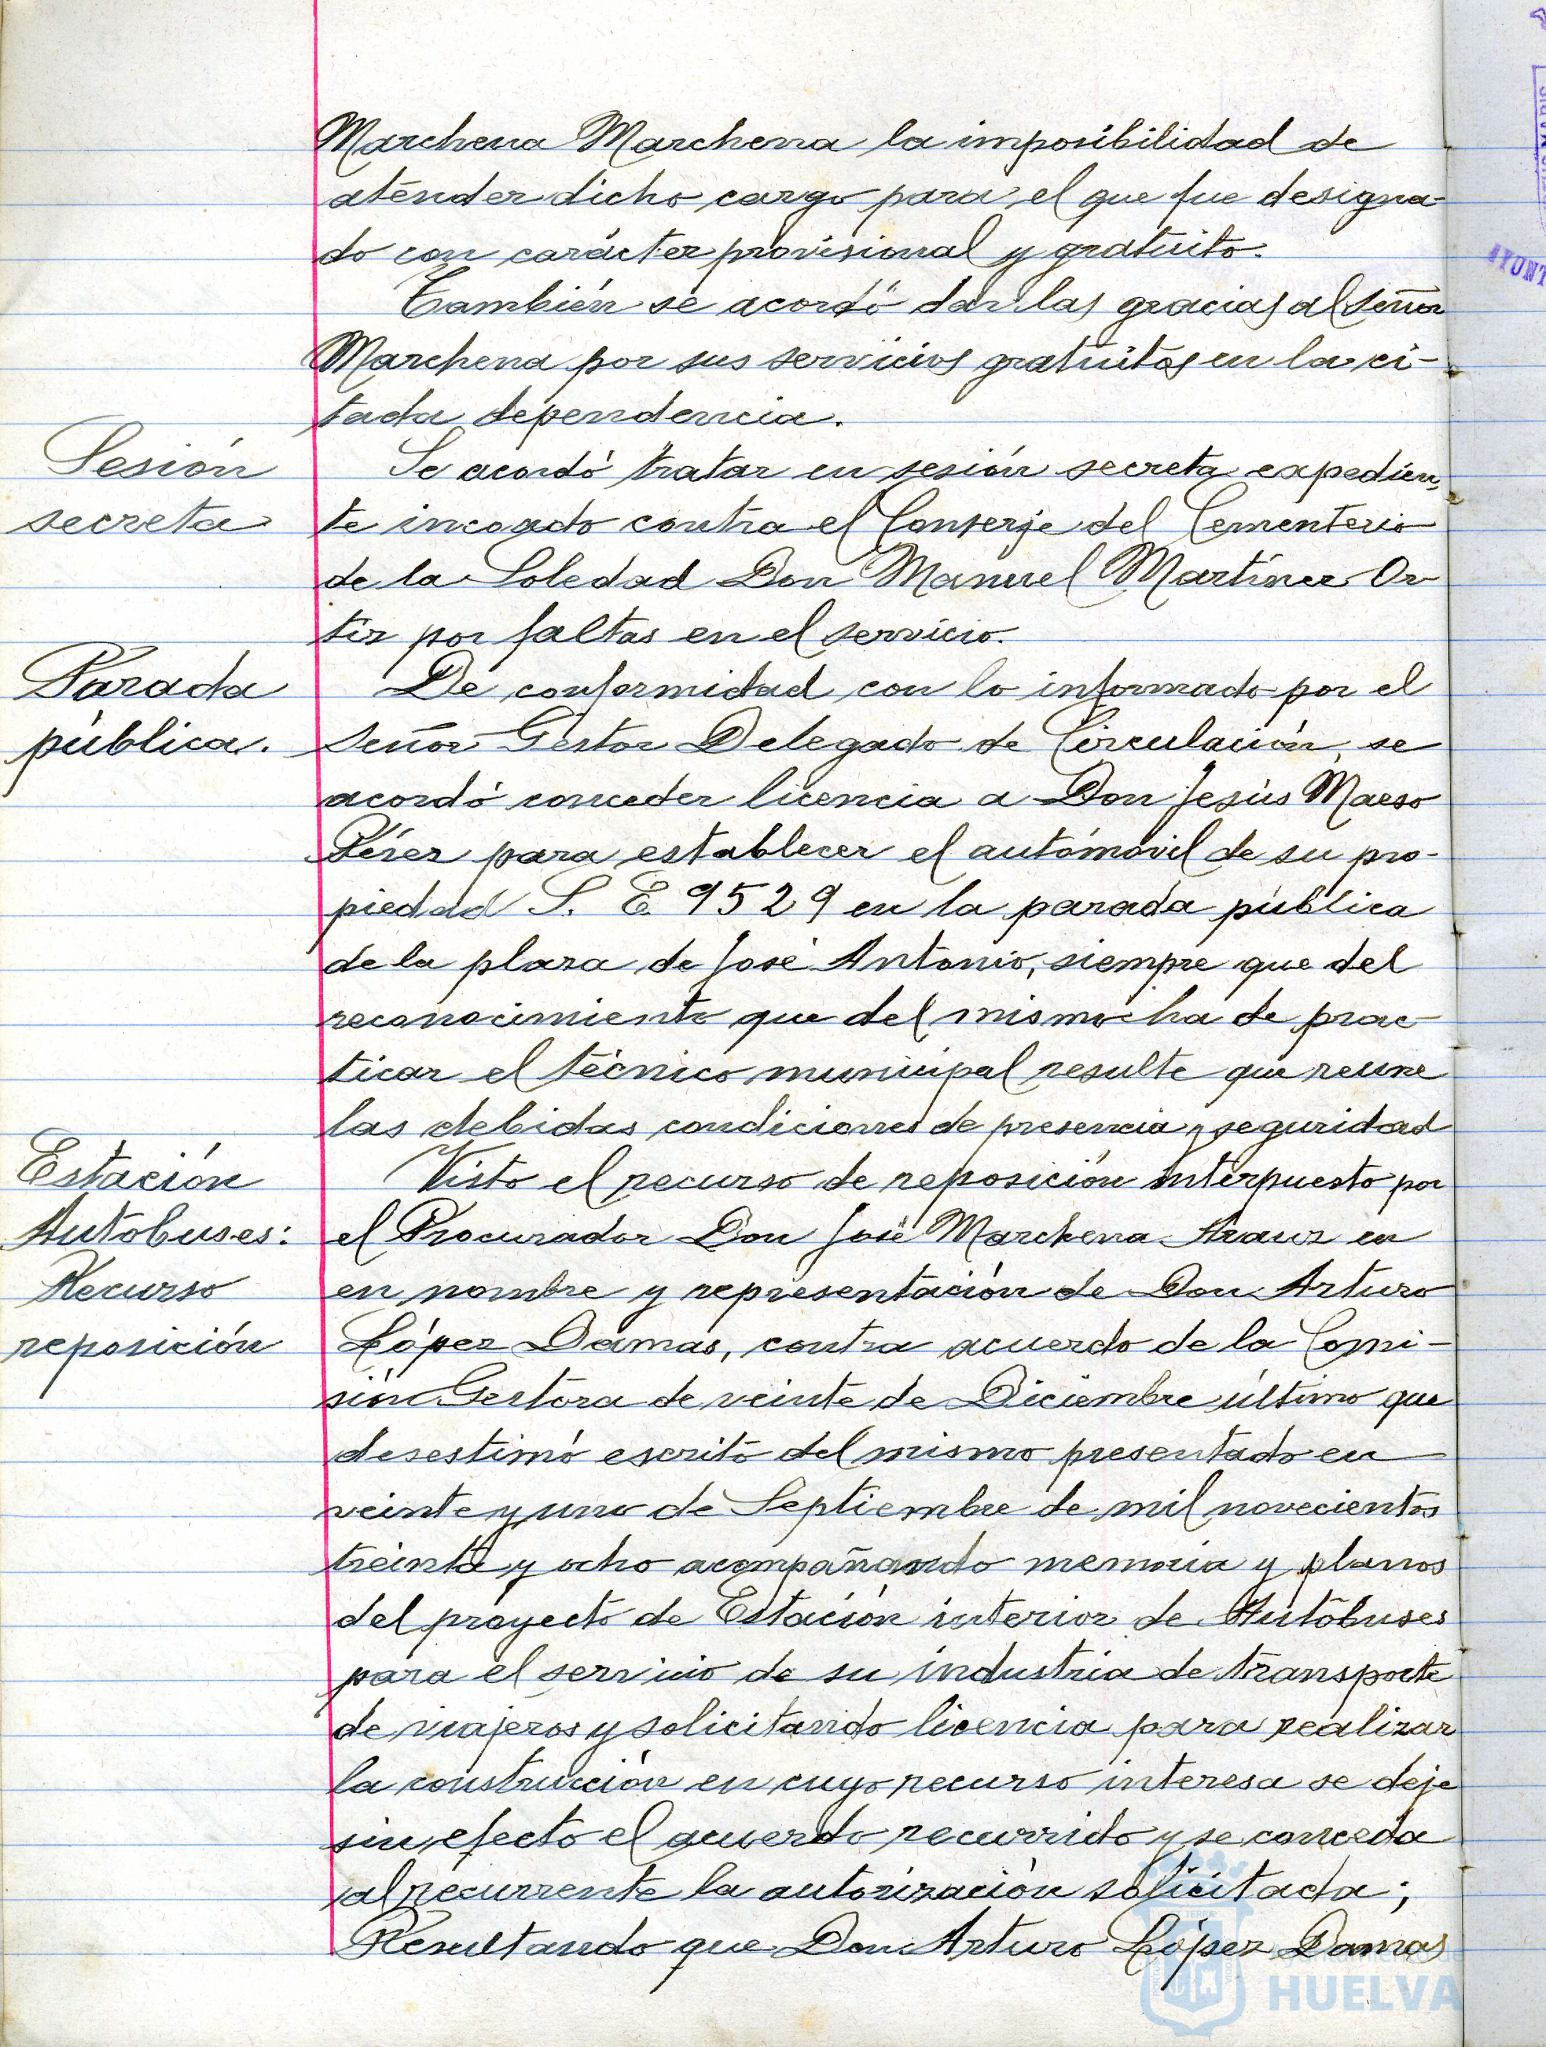 Marchena Marchena la imposibilidad de
aténder dicho cargo para el que fue designa-
do con carácter provisional y gratuito.
También se acordó dar las gracias al Señor
Marchena por sus servicios gratuitos en la ci-
tada dependencia.
Sesión
secreta
Se acordó tratar en sesión secreta expedien-
te incoado contra el Conserje del Cementerio
de la Soledad Don Manuel Martínez Or-
tiz por faltas en el servicio.
Parada
pública.
De conformidad con lo informado por el
Señor Gestor Delegado de Circulación, se
acordó conceder licencia a Don Jesús Maeso
Pérez para establecer el automóvil de su pro-
piedad S. E. 9529 en la parada pública
de la plaza de José Antonio, siempre que del
reconocimiento que del mismo ha de prac-
ticar el técnico municipal resulte que reune
las debidas condiciones de presencia y seguridad
Estación
Autobuses:
Recurso
reposición
Visto el recurso de reposición interpuesto por
el Procurador Don José Marchena Arauz en
en nombre y representación de Don Arturo
López Damas, contra acuerdo de la Comi-
sión Gestora de veinte de Diciembre último que
desestimó escrito del mismo presentado en
veinte y uno de Septiembre de mil novecientos
treinta y ocho acompañando memoria y planos
del proyecto de Estación interior de Autobuses
para el servicio de su industria de transporte
de viajeros y solicitando licencia para realizar
la construcción en cuyo recurso interesa se deje
sin efecto el acuerdo recurrido y se conceda
al recurrente la autorización solicitada;
Resultando que Don Arturo López Damas
Ayuntamiento de
HUELVA